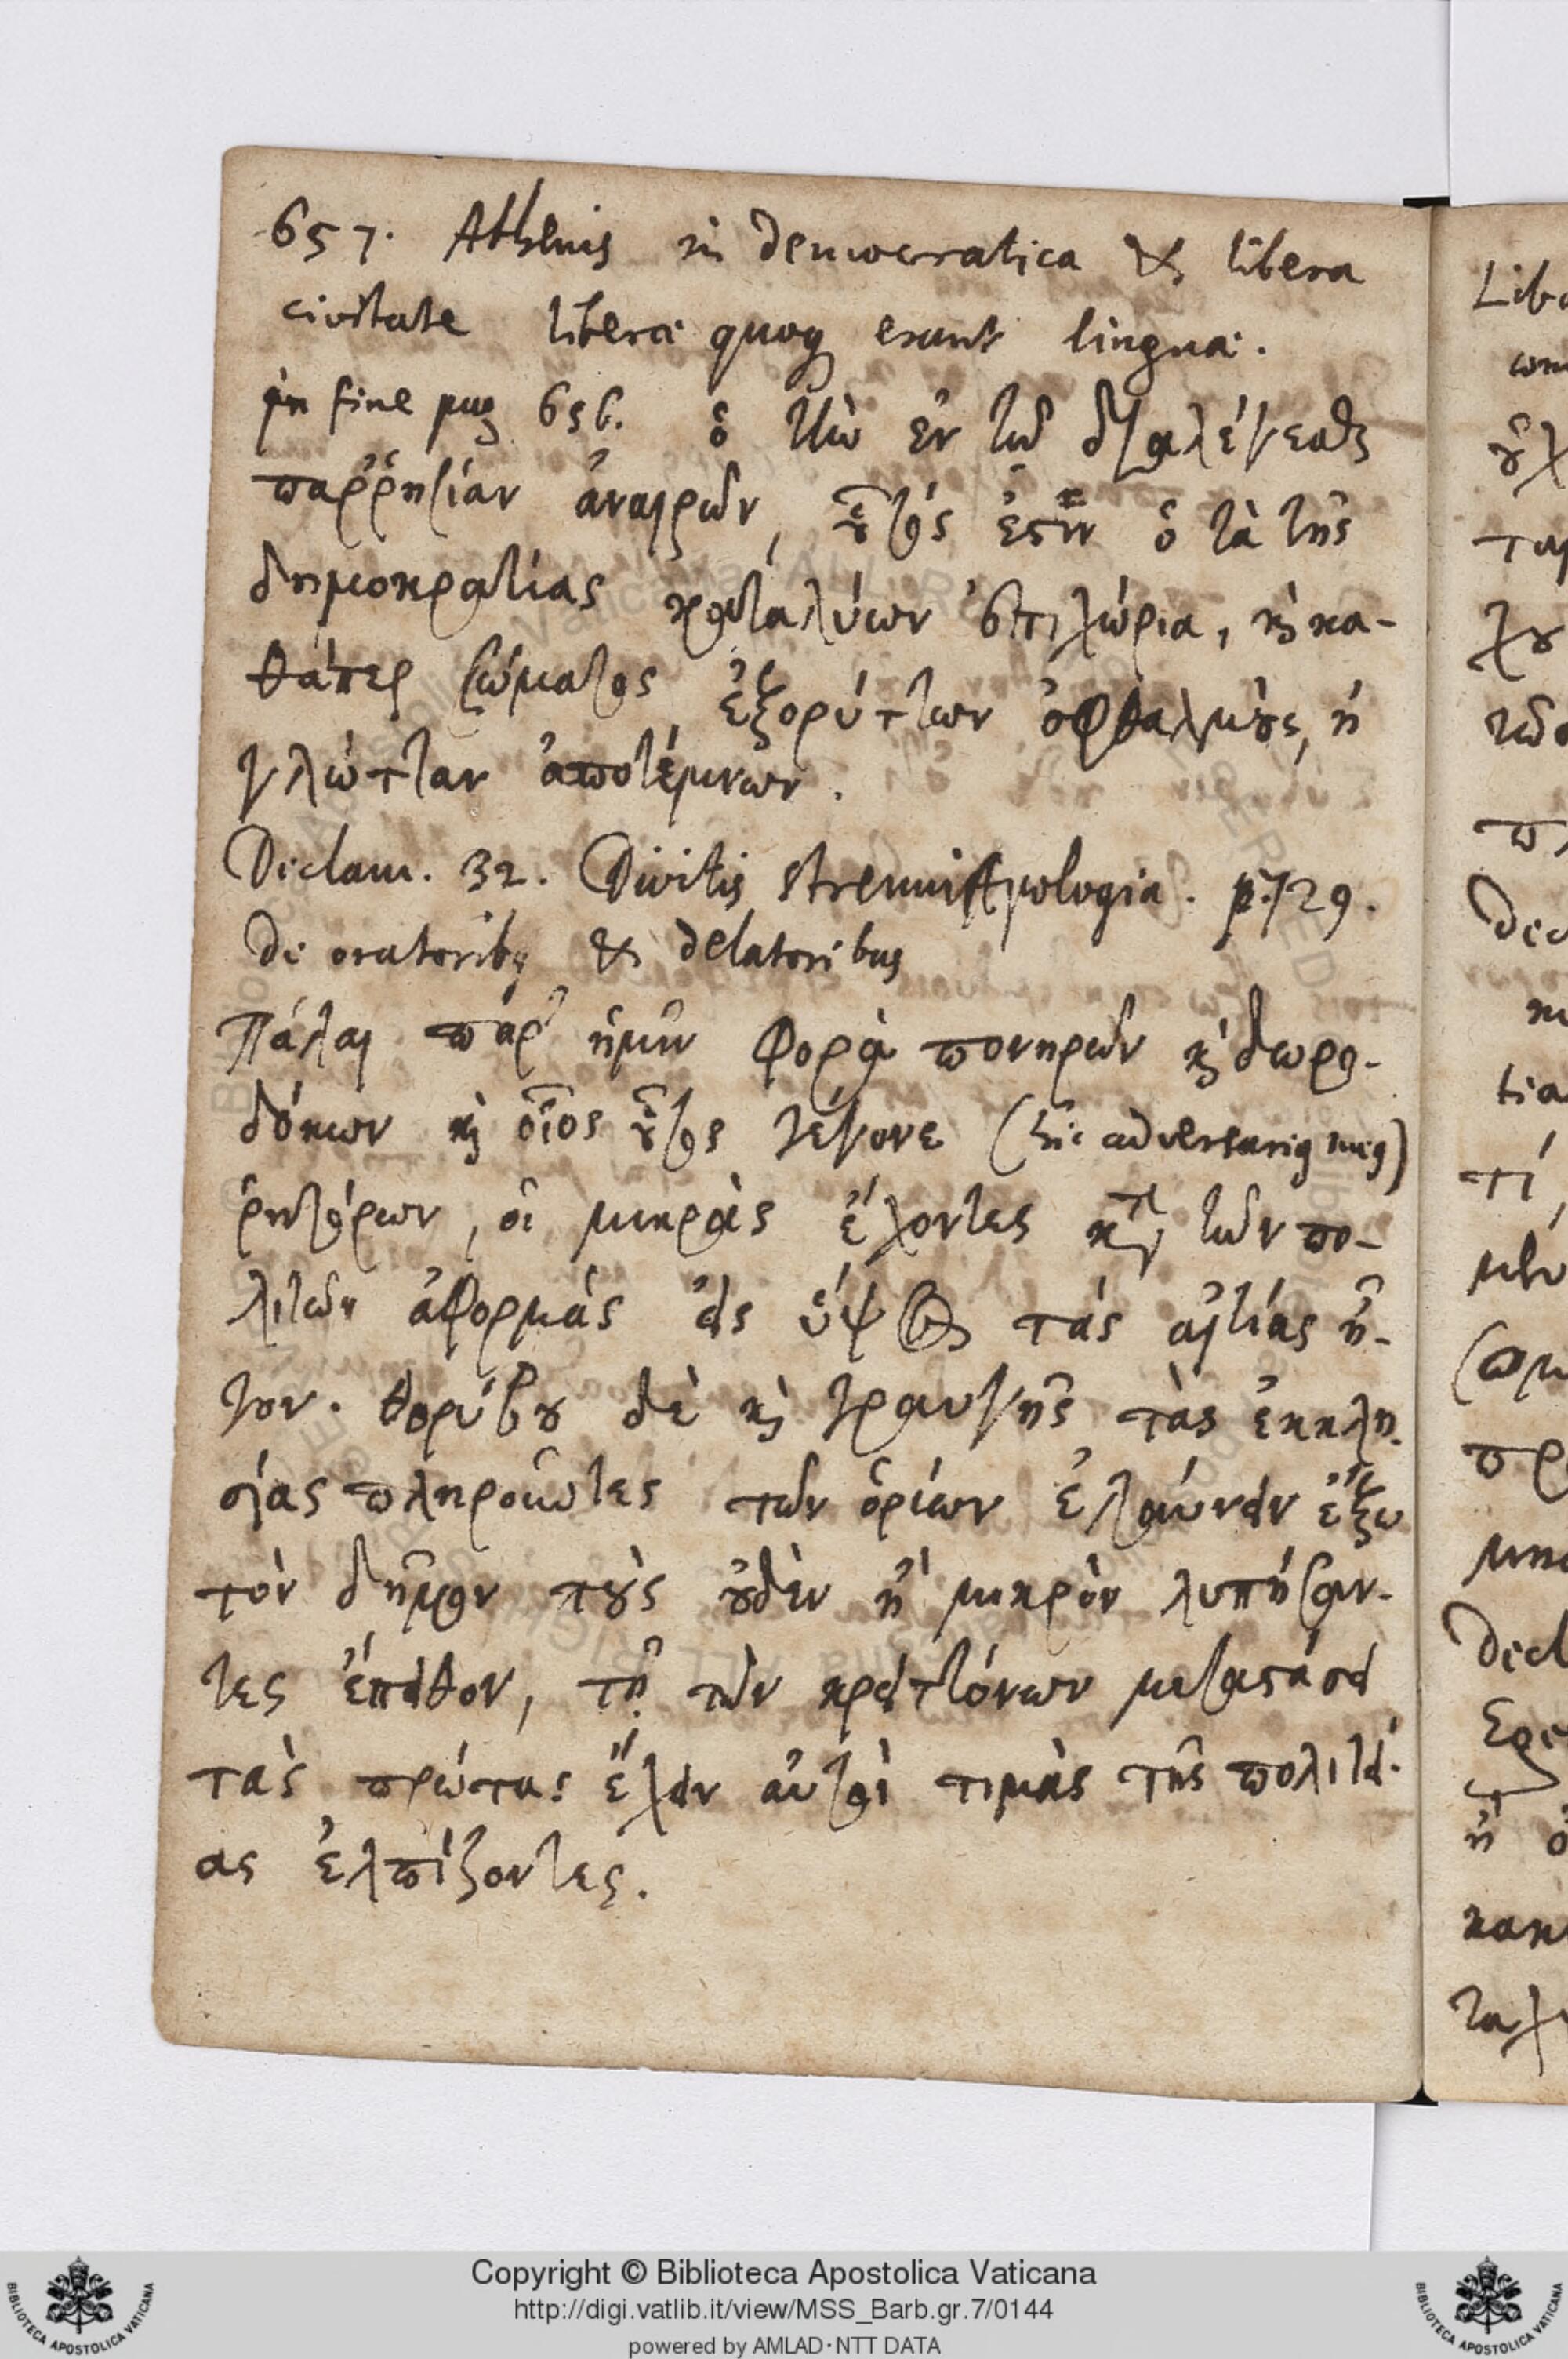 657. Athenis in democratica & libera
civitate liberæ quoq erant linguæ.
in fine pag 656. ὁ τὴν ἐν τῷ διαλέγεσθαι
παῤῥησίαν ἀναιρῶν, οὗτός ἐστιν ὁ τὰ τῆς
δημοκρατίας καταλύων ἐπιχώρια, καὶ κα-
θάπερ σώματος ἐξορύττων ὀφθαλμοὺς, ἢ
γλῶτταν ἀποτέμνων.
Declam. 32. Divitis strenui Apologia. p. 729.
De oratorib9 & delatoribus
Πάλαι παρ' ἡμῖν φορὰ πονηρῶν καὶ δωρο-
δόκων καὶ οἷος οὗτος γέγονε (hic adversari9 me9)
ῥητόρων, οἱ μικρὰς ἔχοντες κατὰ τῶν πο-
λιτῶν ἀφορμάς εἰς ὕψος τάς αἰτίας ἦ-
γον. θορύβου δὲ καὶ κραυγῆς τὰς ἐκκλη-
σίας πληροῦντες τῶν ὁρίων ἐλαύνειν ἔξω
τὸν δῆμον τοὺς οὐδὲν ἢ μικρὸν λυπήσαν-
τες ἔπειθον, τῇ τῶν κρειττόνων μεταστάσει
τὰς πρώτας ἕξειν αὐτοὶ τιμὰς τῆς πολιτεί-
ας ἐλπίζοντες.
Copyright © Biblioteca Apostolica Vaticana
http://digi.vatlib.it/view/MSS_Barb.gr.7/0144
powered by AMLAD·NTT DATA
BIBLIOTECA APOSTOLICA VATICANA
BIBLIOTECA APOSTOLICA VATICANA